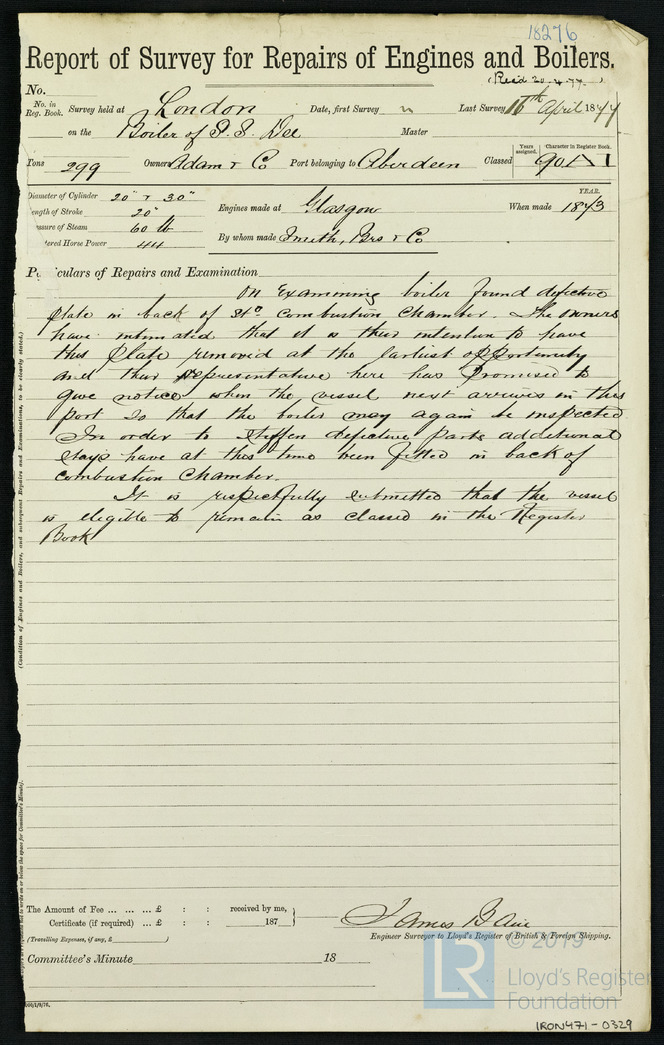 18276
Report of Survey for Repairs of Engines and Boilers.
(Recd 20.4.77.)
No.
No. in Reg. Book. Survey held at London Date, first Survey Last Survey 16th April 1877
on the Boiler of S.S. Dee Master
Tons 299 Owners Adam & Co Port belonging to Aberdeen Classed Years assigned. Character in Register Book. 90 A 1
Diameter of Cylinder 20" & 30"
ength of Stroke 20" Engines made at Glasgow When made YEAR. 1873
ssure of Steam 60 lb
tered Horse Power 44 By whom made Smith, Bros & Co
P culars of Repairs and Examination
On Examining boiler found defective
plate in back of Stbd Combustion Chamber. The owners
have intimated that it is their intention to have
this plate removed at the earliest opportunity
and their representative here has promised to
give notice when the vessel next arrives in this
port so that the boiler may again be inspected
In order to stiffen defective parts additional
stays have at this time been fitted in back of
combustion chamber.
It is respectfully submitted that the vessel
is eligible to remain as classed in the Register
Book
(Condition of Engines and Boilers, and subsequent Repairs and Examinations, to be clearly stated.)
The Amount of Fee ... ... ... £ : : received by me,
Certificate (if required) ... £ : : 187
(Travelling Expenses, if any, £ )
James Bain
Engineer Surveyor to Lloyd's Register of British & Foreign Shipping.
Committee's Minute 18
LR © 2019
Lloyd's Register
Foundation
IRON471-0329